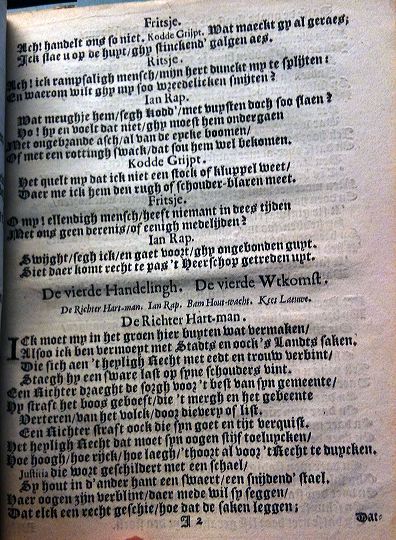 Fritsje.
Ach! handelt ons so niet. Kodde Grijpt. Wat maeckt gy al geraes;
Ick slae u op de hupt/ ghy stinckend' galgen aes.
Ritsje.
Ach! ick rampsaligh mensch/ mijn hert dunckt my te splijten!
En waerom wilt ghy my soo wreedelicken smijten?
Ian Rap.
Wat meughje hem/ segh Kodd'/ met vuysten doch soo slaen?
Ho! hy en voelt dat niet/ ghy moest hem ondergaen
Met ongebrande asch/ al van de eycke boomen/
Of met een rottingh swack/ dat sou hem wel bekomen.
Kodde Grijpt.
Het quelt my dat ick niet een stock of kluppel weet/
Daer me ick hem den rugh of schouder-blaren meet.
Fritsje.
O my! ellendigh mensch/ heeft niemant in dees tijden
Met ons geen derenis/ of eenigh medelijden?
Ian Rap.
Swijght/ segh ick/ en gaet voort/ ghy ongebonden guyt.
Siet daer komt recht te pas 't Heerschop getreden uyt.
De vierde Handelingh. De vierde Wtkomst.
De Richter Hart-man, Ian Rap, Bam Hout-wacht, Kees Lauwe.
De Richter Hart-man.
ICk moet my in het groen hier buyten wat vermaken/
Alsoo ick ben vermoept met Stadts en oock 's Landts saken.
Die sich aen 't heyligh Recht met eedt en trouw verbint/
Staegh hy een sware last op syne schouders vint.
Een Richter draeght de sorgh voor 't best van syn gemeente/
Hy straft het boos geboest/ die 't mergh en het gebeente
Verteren/ van het volck/ door dievery of list.
Een Richter straft oock die syn goet en tijt verquist.
Het heyligh Recht dat moet syn oogen stijf toeluycken/
Hoe hoogh/ hoe rijck/ hoe laegh/ 't hoort al voor 't Recht te duycken.
Justitia die wort geschildert met een schael/
Sy hout in d'ander hant een swaert/ een snijdend' stael.
Haer oogen zijn verblint/ daer mede wil sy seggen/
Dat elck een recht geschie/ hoe dat de saken leggen;
A 2
Dat-